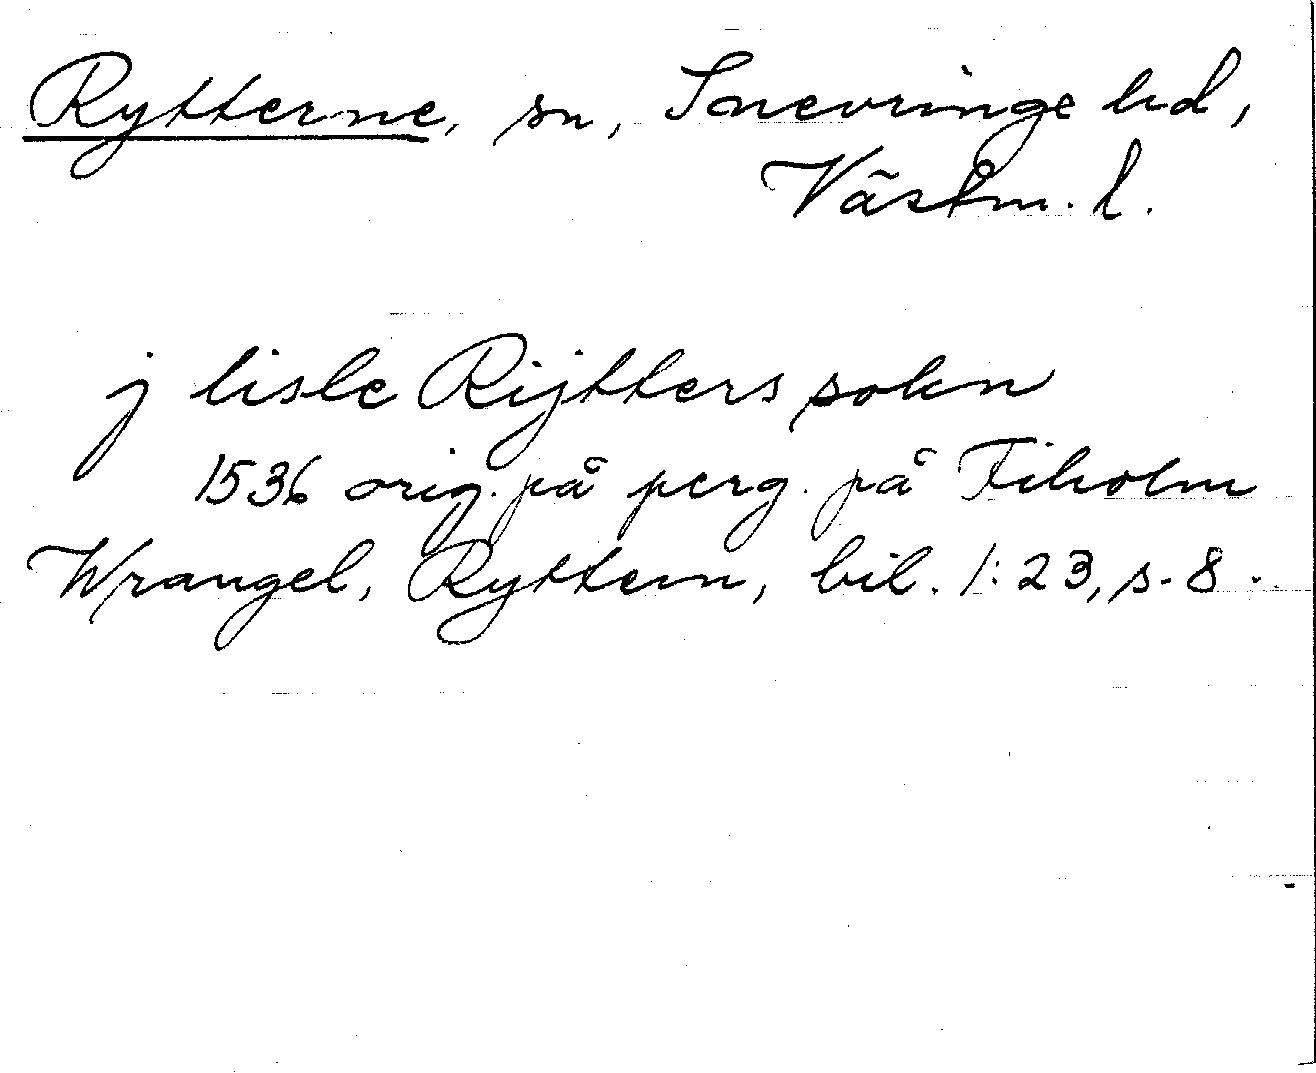 Rytterne, sn, Snevringe hd,
Västm. l.
j lisle Rijtters sokn
1536 orig. på perg. på Fiholm
Wrangel, Ryttern, bil. 1:23, s. 8.